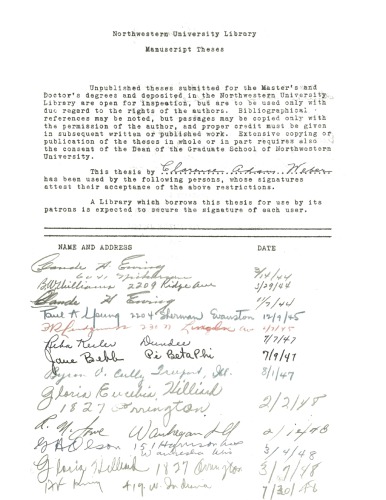 Northwestern University Library
Manuscript Theses
Unpublished theses submitted for the Master's and
Doctor's degrees and deposited in the Northwestern University
Library are open for inspection, but are to be used only with
due regard to the rights of the authors. Bibliographical
references may be noted, but passages may be copied only with
the permission of the author, and proper credit must be given
in subsequent written or published work. Extensive copying or
publication of the theses in whole or in part requires also
the consent of the Dean of the Graduate School of Northwestern
University.
This thesis by Clarence Adams Weber
has been used by the following persons, whose signatures
attest their acceptance of the above restrictions.
A Library which borrows this thesis for use by its
patrons is expected to secure the signature of each user.
NAME AND ADDRESS DATE
Claude H. Ewing
B.W. Williams 2209 Ridge Ave 3/29/44
Claude H Ewing
Paul A Young 2204 Sherman Evanston 12/9/45
Lincoln
Dundee 7/7/47
Jane Bebb Pi Beta Phi 7/9/47
Byron Freeport, Ill. 8/1/47
Gloria Eugenia Hilliard
1827 Orrington 2/2/48
Waukegan Ill
Olson 151 Harrison Ave
3/4/48
Gloria Hilliard 1827 Orrington 3/9/48
419 W. Indiana